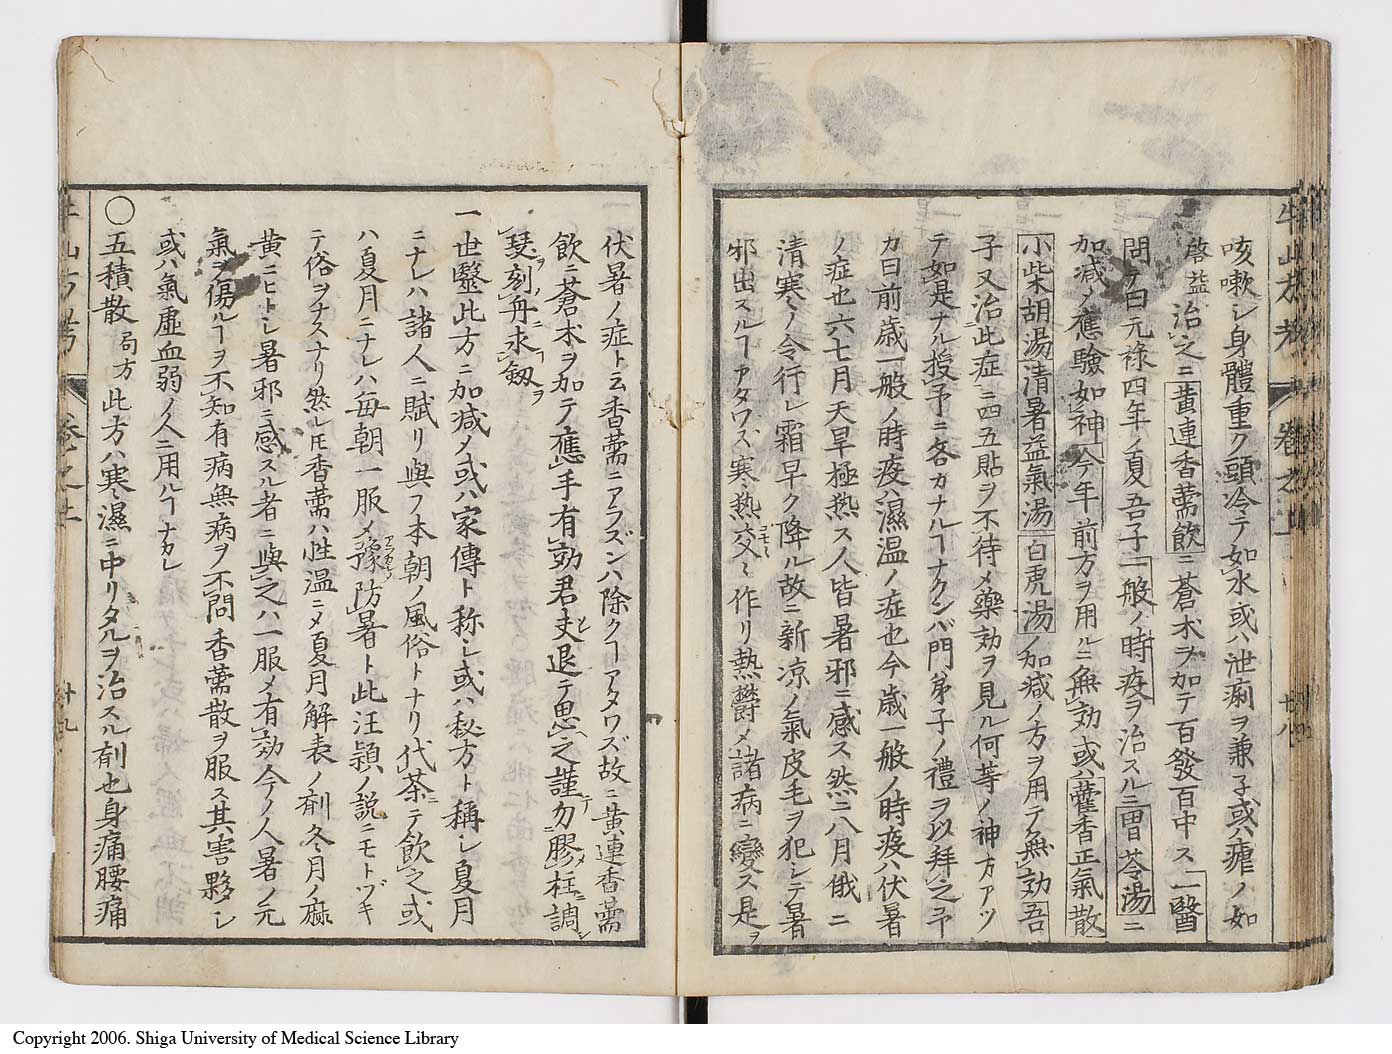 咳嗽シ身體重ク頭冷テ如水或ハ泄痢ヲ兼子或ハ瘧ノ如
啓益治之ニ黄連香薷飲ニ蒼朮ヲ加テ百發百中ス一醫
問ケ曰元祿四年ノ夏吾子一般ノ時疫ヲ治スルニ曽苓湯ニ
加減ノ應驗如神今年前方ヲ用ルニ無効或ハ藿香正氣散
小柴胡湯清暑益氣湯白虎湯ノ加减ノ方ヲ用テ無効吾
子又治此症ニ四五貼ヲ不待メ藥効ヲ見ル何等ノ神方アツ
テ如是ナル授予ニ吝カナルヿナクンバ門弟子ノ禮ヲ以拜之予
カ曰前歳一般ノ時疫ハ濕温ノ症也今歳一般ノ時疫ハ伏暑
ノ症也六七月天旱極热ス人皆暑邪ニ感ス然ニ八月俄ニ
清寒ノ令行レ霜早ク降ル故ニ新凉ノ氣皮毛ヲ犯シテ暑
邪出スルヿアタワズ寒热交〻作リ熱鬱メ諸病ニ變ス是ヲ
牛山方考 卷之上 廿八
伏暑ノ症ト云香薷ニアラズンハ除クヿアタワズ故ニ黄連香薷
飲ニ蒼朮ヲ加テ應手有効君夫退テ思之謹勿膠柱調
瑟刻舟求劔ヲ
一世醫此方ニ加減メ或ハ家傳ト称シ或ハ秘方ト稱シ夏月
ニナレハ諸人ニ賦リ與フ本朝ノ風俗トナリ代茶ニテ飲之或
ハ夏月ニナレハ毎朝一服メ豫防暑ト此汪頴ノ説ニモトヅキ
テ俗ヲナスナリ然レ𪜈香薷ハ性温ニメ夏月解表ノ剤冬月ノ麻
黄ニヒトシ暑邪ニ感スル者ニ與之ハ一服メ有効今ノ人暑ノ元
氣ヲ傷ルヿヲ不知有病無病ヲ不問香薷散ヲ服ス其害夥シ
或ハ氣虚血弱ノ人ニ用ルヿナカレ
〇五積散 局方 此方ハ寒濕ニ中リタルヲ治スル剤也身痛腰痛
牛山方考 卷之上 廿九
Copyright 2006. Shiga University of Medical Science Library